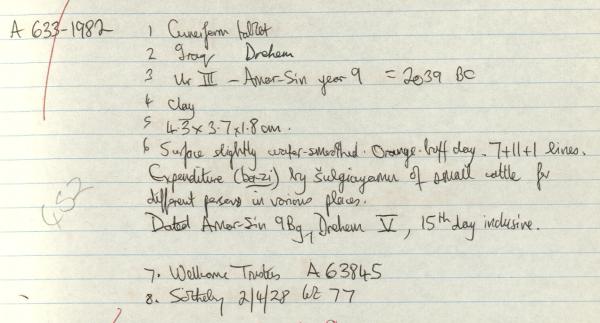 A 633-1982 1 Cuneiform tablet
2 Iraq Drehem
3 Ur III - Amar-Sin year 9 = 2039 BC
4 Clay
5 4.3 x 3.7 x 1.8 cm.
6 Surface slightly water-smoothed. Orange-buff clay. 7+11+1 lines.
Expenditure (ba-zi) by of small cattle for
different persons in various places.
452
Dated Amar-Sin 9 Drehem V, 15th day inclusive.
7. Wellcome Trustees A 63845
8. Sotheby 2/4/28 lot 77